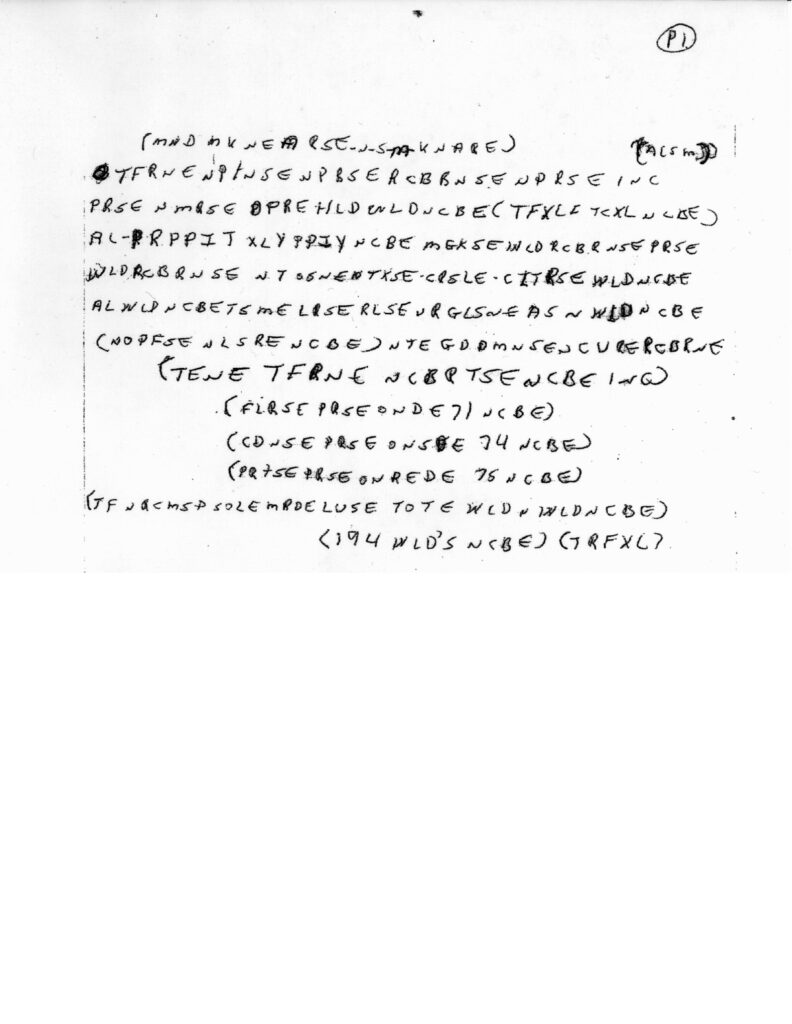 P1
(MND MKNEARSE-N-S-M-KNARE) (ACSM)
TFRNE NPINSE NPBSE RCBBNSE NPRSE INC
PRSE NMRSE OPREHLD WLDNCBE (TFXLF TCXL NCBE)
AL-PRPPIT XLY PPIY NCBE MGKSE WLDRCBRNSE PRSE
WLDRCBRNSE NT SGNENTXSE-CRSLE-CITRSE WLDNCBE
ALWLDNCBETSME LRSERLSEURGLSNEASN WLDNCBE
(NOPFSE NLSRE NCBE) NTEGDDMNSENCURERCBRNE
(TENE TFRNE NCBRTSENCBE ING)
(FLRSE PRSE ONDE 71 NCBE)
(CDNSE PRSE ONSDE 74 NCBE)
(PRTSE PRSE ONREDE 75 NCBE)
(TFNQCMSP SOLE MRDELUSE TOTE WLDN WLDNCBE)
(194 WLD'S NCBE) (TRFXL)